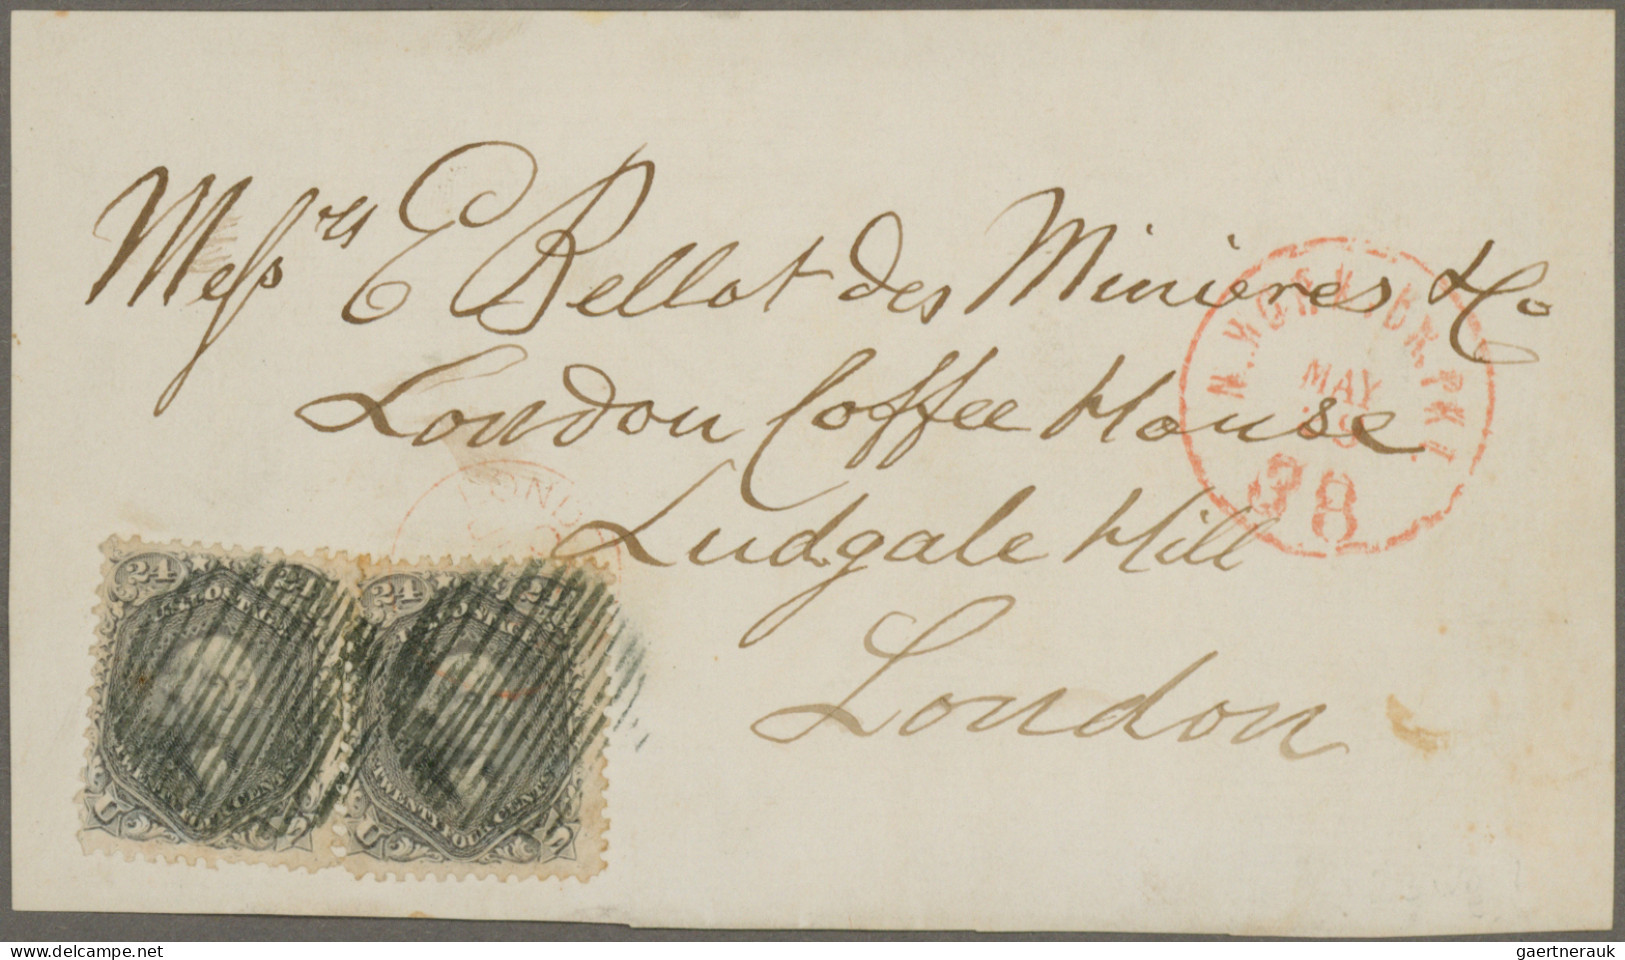 Messrs E Bellot des Minieres & Co
London Coffee House
Ludgate Hill
London
N. YORK BR. PKT.
MAY
38
24 24
U.S. POSTAGE
TWENTY FOUR CENTS
U S
24 24
U.S. POSTAGE
TWENTY FOUR CENTS
U S
gaertnerauk